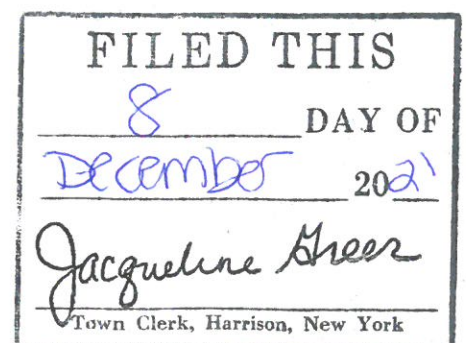 FILED THIS
8 DAY OF
December 2021
Jacqueline Greer
Town Clerk, Harrison, New York